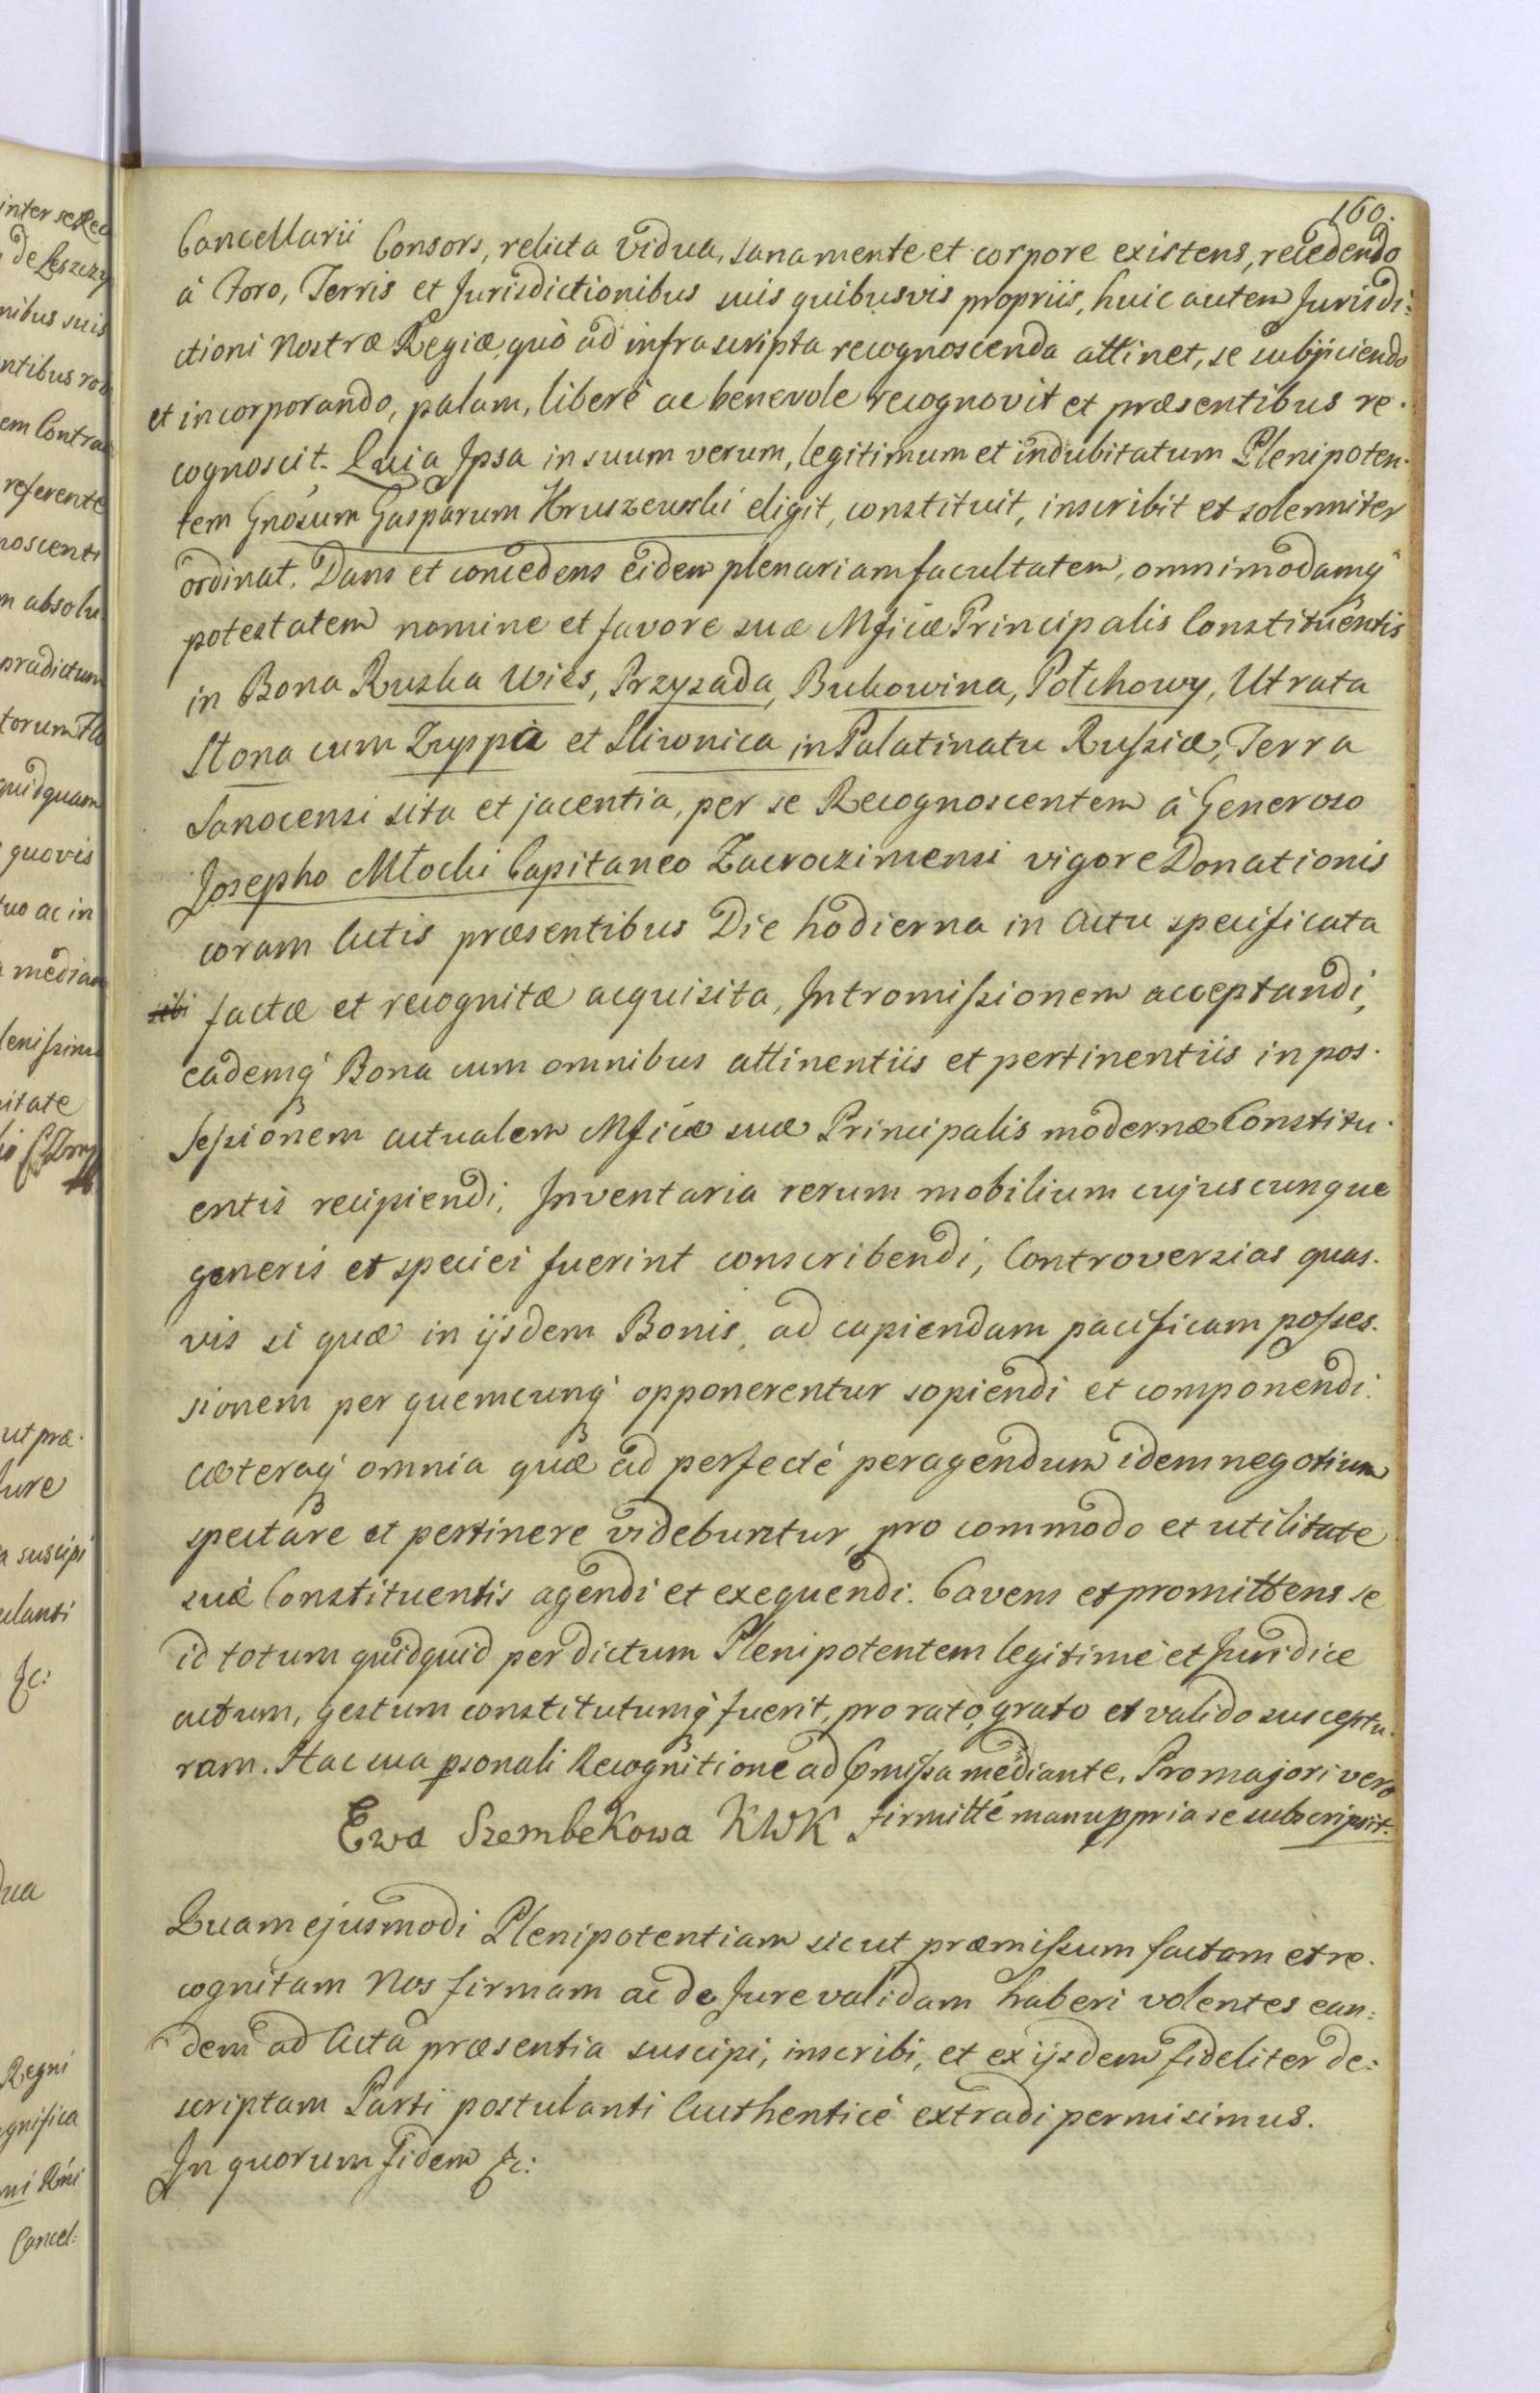 160.
Cancellarii Consors, relicta Vidua, sana mente et corpore existens, recedendo
à Foro, Terris et Jurisdictionibus suis quibusvis propriis, huic autem Jurisdi:
ctioni Nostræ Regiæ, quò ad infrascripta recognoscenda attinet, se subijciendo
et incorporando, palam, liberè ac benevole recognovit et præsentibus re.
cognoscit. Quia Ipsa in suum verum, legitimum et indubitatum Plenipoten.
tem Gnosum Gasparum Hruszewski eligit, constituit, inscribit et solenniter
ordinat. Dans et concedens eidem plenariam facultatem, omnimodamq̃
potestatem nomine et favore suæ Mficæ Principalis Constituentis
in Bona Ruska Wies, Przysada, Bukowina, Połchowy, Utrata
Stona cum Zuppà et Sliwnica in Palatinatu Russiæ, Terra
Sanocensi sita et jacentia, per se Recognoscentem à Generoso
Josepho Młocki Capitaneo Zacroczimensi vigore Donationis
coram Actis præsentibus Die hodierna in Actu specificata
sibi factæ et recognitæ acquisita, Intromissionem acceptandi,
eademq́ Bona cum omnibus attinentiis et pertinentiis in pos.
sessionem actualem Mficæ suæ Principalis modernæ Constitu.
entis recipiendi, Inventaria rerum mobilium cujuscunque
generis et speciei fuerint conscribendi, Controversias quas.
vis si quæ in ijsdem Bonis, ad capiendam pacificam posses.
sionem per quemcunq́ opponerentur sopiendi et componendi.
cæteraq́ omnia quæ ad perfectè peragendum idem negotium
spectare et pertinere videbuntur, pro commodo et utilitate
suæ Constituentis agendi et exequendi. Cavens et promittens se
id totum quidquid per dictum Plenipotentem legitimè et Juridice
actum, gestum constitutumq́ fuerit, pro rato, grato et valido susceptu.
ram. Hac sua psonali Recognitione ad pmissa mediante. Pro majori vero
firmitte manu ppria se subscripsit.
Ewa Szembekowa KWK
Quam ejusmodi Plenipotentiam sicut præmissum factam et re.
cognitam Nos firmam ac de Jure validam haberi volentes ean:
dem ad Acta præsentia suscipi, inscribi, et ex ijsdem fideliter de:
scriptam Parti postulanti Authenticè extradi permisimus.
In quorum Fidem &c: